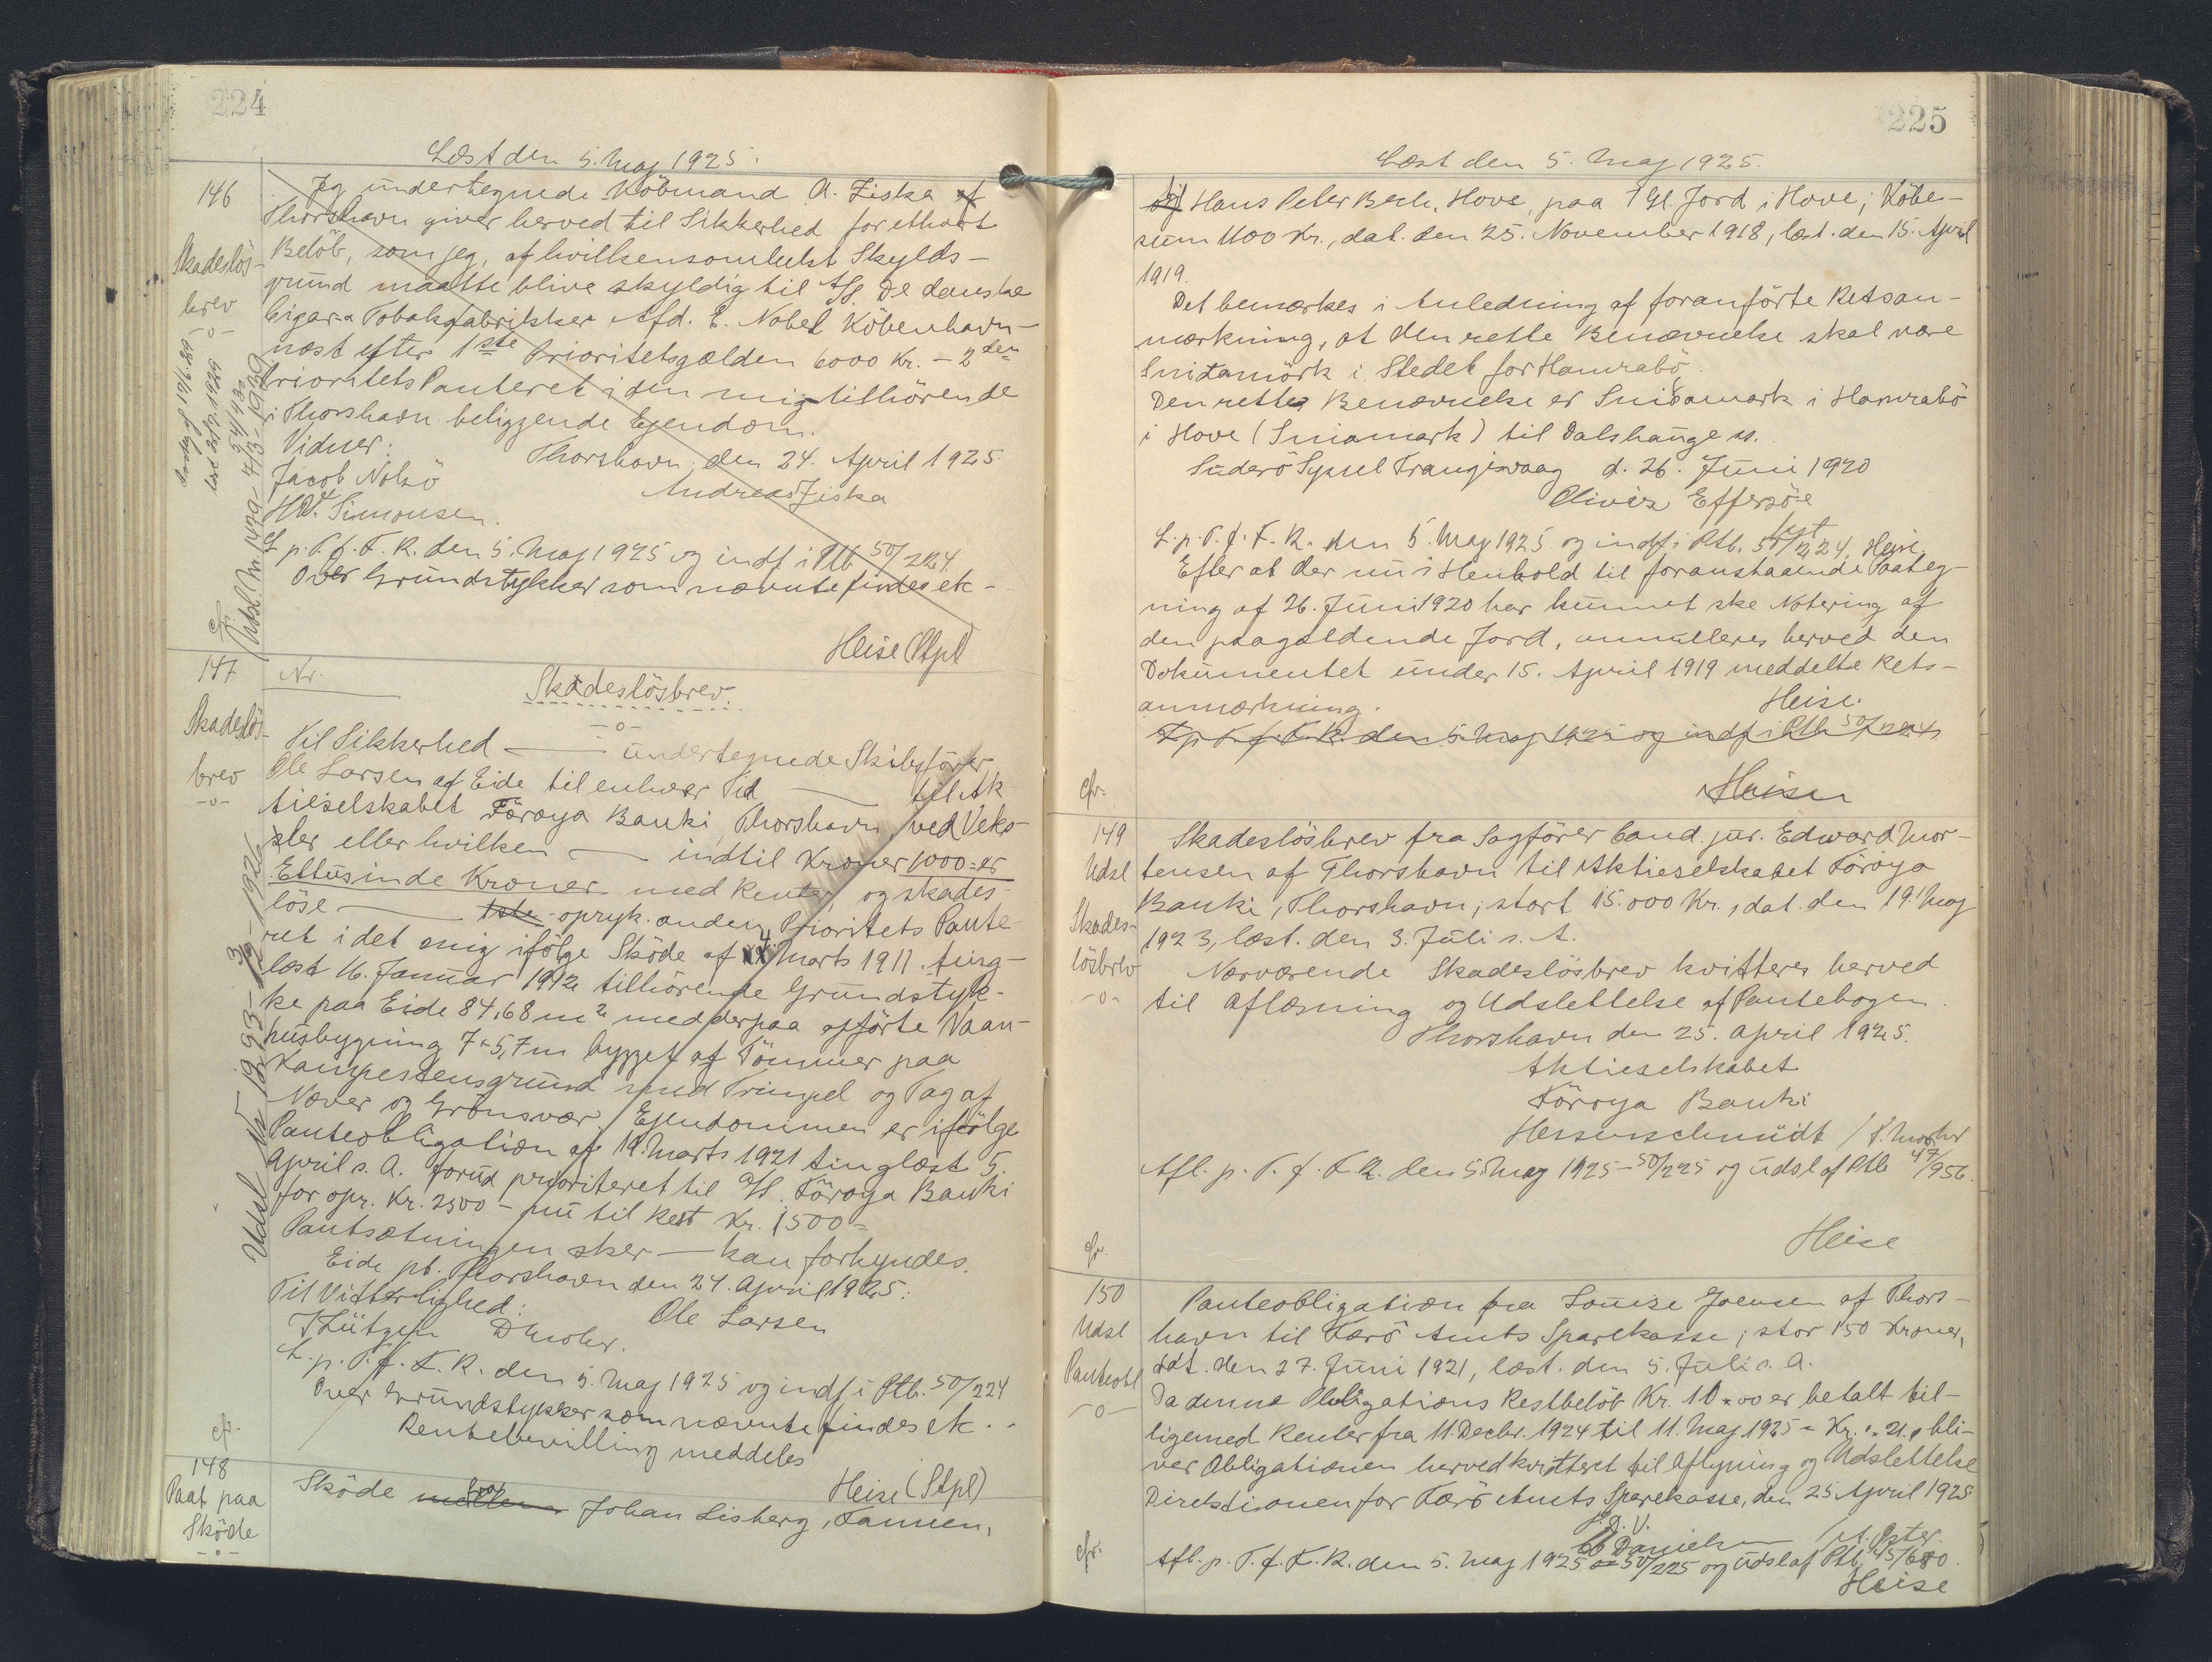 224
Læst den 5. Maj 1925.
146
Skadeslös-
brev
-o-
Jeg undertegnede Köbmand A. Ziska af
Thorshavn giver herved til Sikkerhed for ethvert
Belöb, som jeg, af hvilkensomhelst Skylds-
grund maatte blive skyldig til A/S. De danske
Cigar- & Tobaksfabrikker Afd. E. Nobel Köbenhavn -
næst efter 1ste Prioritetsgælden 6000 Kr. - 2den
Prioritets Panteret i den mig tilhörende
i Thorshavn beliggende Ejendom.
Vidner:
Thorshavn, den 24. April 1925.
Jacob Nolsö
Andreas Ziska
H. Simonsen.
L. p. T. f. F. R. den 5. Maj 1925 og indf i Ptb 50/224.
Over Grundstykker som nævnte findes ek-
Heise (Stpl)
cfr.
147
Skadeslös-
brev
-o-
Nr.
Skadeslösbrev.
-o-
Til Sikkerhed — undertegnede Skibsförer
Ole Larsen af Eide til enhver Tid — til Ak-
tieselskabet Föroya Banki, Thorshavn, ved Veks-
sler eller hvilken — indtil Kroner 1000 = er
Ettusinde Kroner med Renter og skades-
löse — 1ste opryk. anden Prioritets Pante-
ret i det mig ifölge Sköde af 4 Marts 1911. ting-
læst 16. Januar 1912 tilhörende Grundstyk-
ke paa Eide 84,68 m2 med derpaa opförte Vaan-
husbygning 7 × 5,7 m bygget af Tömmer paa
Kampestensgrund med Trimpel og Tag af
Næver og Grönsvær. Ejendommen er ifölge
Panteobligation af 19. Marts 1921 tinglæst 5.
April s. A. forud prioriteret til A/S. Föroya Banki
for opr. Kr. 2500 - nu til Rest Kr. 1500 =
Pantsætningen sker — kan forkyndes.
Eide pt. Thorshavn den 24. April 1925.
Til Vitterlighed:
Ole Larsen
Lützen D Mohr.
L. p. T. f. F. R. den 5. Maj 1925 og indf i Ptb. 50/224
Over Grundstykker som nævnte findes ek..
Rentebevilling meddeles
Heise (Stpl)
cfr.
148
Paat paa
Sköde
-o-
Sköde fra Johan Lisberg, Famien,
225
Læst den 5. Maj 1925.
til Hans Peter Bech, Hove, paa 1 Gl. Jord i Hove; Köbe-
sum 1100 Kr., dat. den 25. November 1918, læst. den 15. April
1919.
Det bemærkes i Anledning af foranförte Retsan-
mærkning, at den rette Benævnelse skal være
Snidamörk i Stedet for Hamrabö.
Den rette Benævnelse er Snidamark i Hamrabö
i Hove (Sniamark) til Dalshauge
Suderö Syssel Trangisvaag d. 26. Juni 1920
Oliver Effersöe
L. p. T. f. F. R. den 5. Maj 1925 og indf i Ptb. 50/224, Heise
Efter at der nu i Henhold til foranstaaende Paateg-
ning af 26. Juni 1920 har kunnet ske Notering af
den paagældende Jord, annulleres herved den
Dokumentet under 15. April 1919 meddelte Rets-
anmærkning.
Heise.
L. p. T. f. F. R. den 5. Maj 1925 og indf i Ptb 50/224.
Heise
cfr.
149
Udsl
Skades-
lösbrev
-o-
Skadeslösbrev fra Sagförer Cand. jur. Edward Mor-
tensen af Thorshavn til Aktieselskabet Föroya
Banki, Thorshavn; stort 15.000 Kr., dat. den 19. Maj
1923, læst. den 3. Juli s. A.
Nærværende Skadeslösbrev kvitteres herved
til Aflæsning og Udslettelse af Pantebogen
Thorshavn den 25. April 1925.
Aktieselskabet
Föroya Banki
Herrenschmidt /
Afl. p. T. f. F. R. den 5. Maj 1925 - 50/225 og udsl af Ptb 47/956.
Heise
cfr.
150
Udsl
Panteobl
-o-
Panteobligation fra Louise Joensen af Thors-
havn til Færö Amts Sparekasse; stor 150 Kroner,
dat. den 27. Juni 1921, læst. den 5. Juli s. A.
Da denne Obligations Restbelöb Kr. 10 * 00 er betalt til-
ligemed Renter fra 11. Decbr. 1924 til 11. Maj 1925 = Kr. ". 21. bli-
ver Obligationen herved kvitteret til Aflysning og Udslettelse
Direktionen for Færö Amts Sparekasse, den 25. April 1925
P. D. V.
Danielsen /
Afl. p. T. f. F. R. den 5. Maj 1925 50/225 og udsl af Ptb. 45/680.
Heise
cfr.